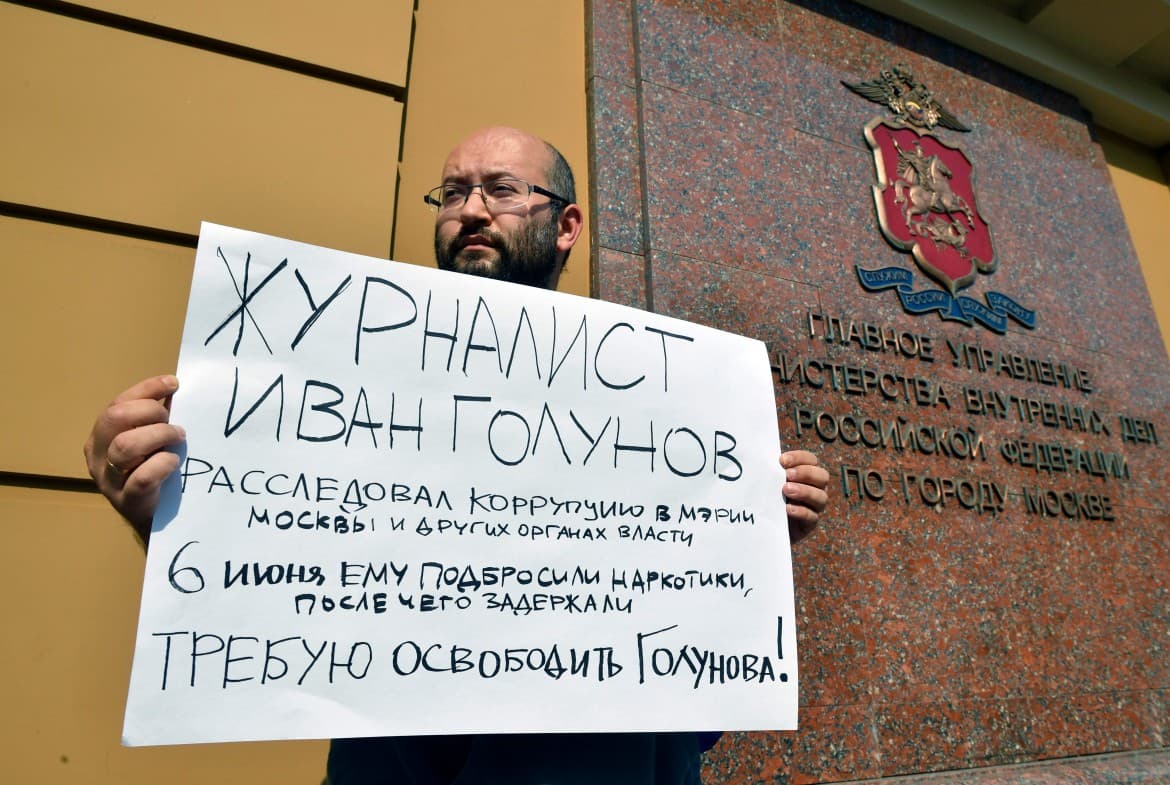 ЖУРНАЛИСТ
ИВАН ГОЛУНОВ
РАССЛЕДОВАЛ КОРРУПЦИЮ В МЭРИИ
МОСКВЫ И ДРУГИХ ОРГАНАХ ВЛАСТИ
6 ИЮНЯ ЕМУ ПОДБРОСИЛИ НАРКОТИКИ,
ПОСЛЕ ЧЕГО ЗАДЕРЖАЛИ
ТРЕБУЮ ОСВОБОДИТЬ ГОЛУНОВА!
СЛУЖИМ РОССИИ СЛУЖИМ ЗАКОНУ
ГЛАВНОЕ УПРАВЛЕНИЕ
НИСТЕРСТВА ВНУТРЕННИХ ДЕЛ
РОССИЙСКОЙ ФЕДЕРАЦИИ
ПО ГОРОДУ МОСКВЕ